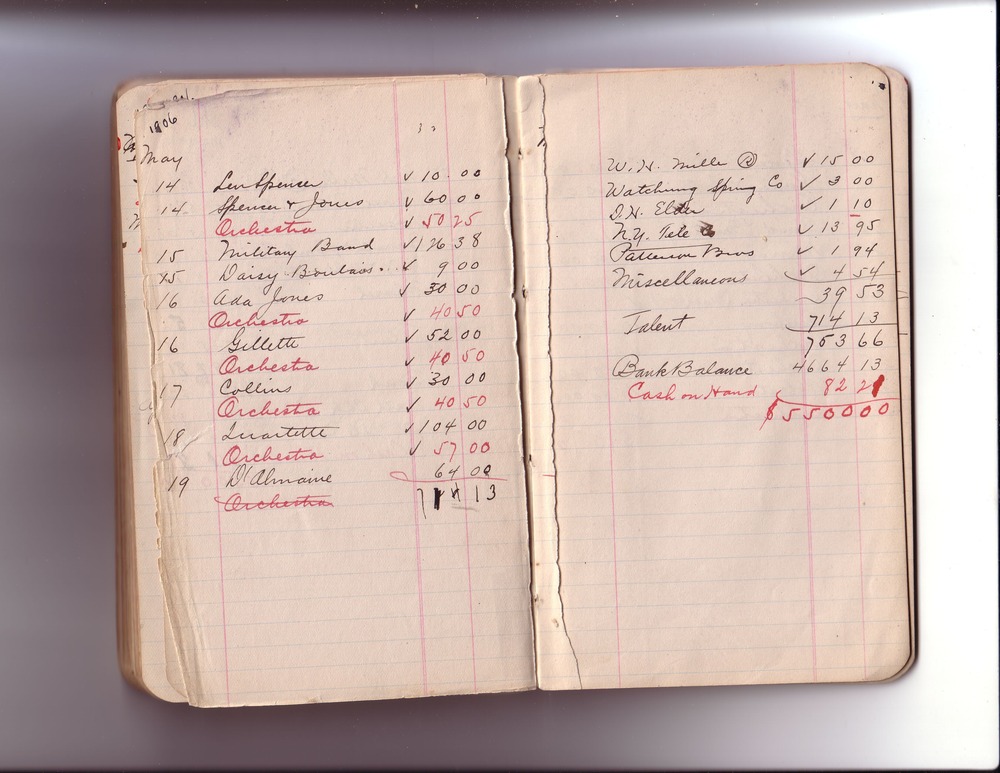 1906
May
14 Len Spencer ✓ 10 00
14 Spencer & Jones ✓ 60 00
Orchestra ✓ 50 25
15 Military Band ✓ 126 38
15 Daisy Boulais ✓ 9 00
16 Ada Jones ✓ 30 00
Orchestra ✓ 40 50
16 Gillette ✓ 52 00
Orchestra ✓ 40 50
17 Collins ✓ 30 00
Orchestra ✓ 40 50
18 Quartette ✓ 104 00
Orchestra ✓ 57 00
19 D'Almaine 64 00
Orchestra 714 13
W. H. Mille ® ✓ 15 00
Watchung Spring Co ✓ 3 00
D. H. Elder ✓ 1 10
N.Y. Tele Co ✓ 13 95
Patterson Bros ✓ 1 94
Miscellaneous ✓ 4 54
39 53
Talent 714 13
753 66
Bank Balance 4664 13
Cash on Hand 82 21
$5500 00